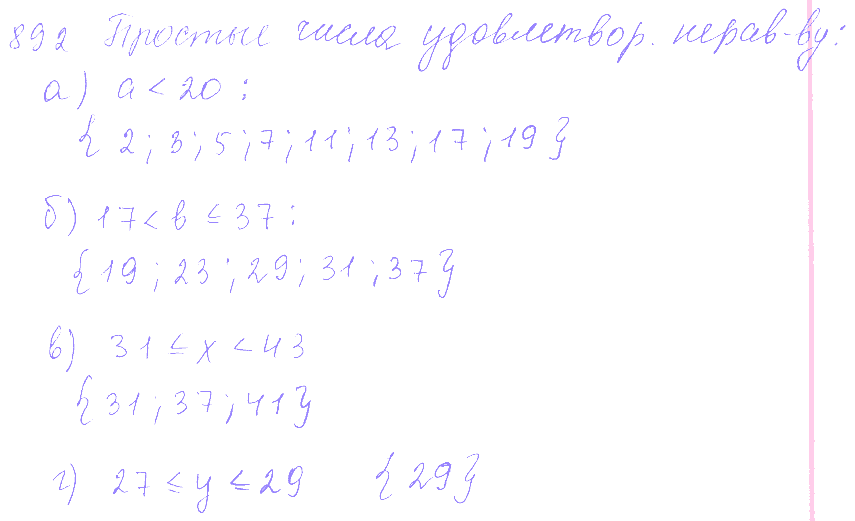 892 Простые числа удовлетвор. нерав-ву:
а) a < 20 :
{ 2 ; 3 ; 5 ; 7 ; 11 ; 13 ; 17 ; 19 }
б) 17 < b ≤ 37 :
{ 19 ; 23 ; 29 ; 31 ; 37 }
в) 31 ≤ x < 43
{ 31 ; 37 ; 41 }
г) 27 ≤ y ≤ 29 { 29 }